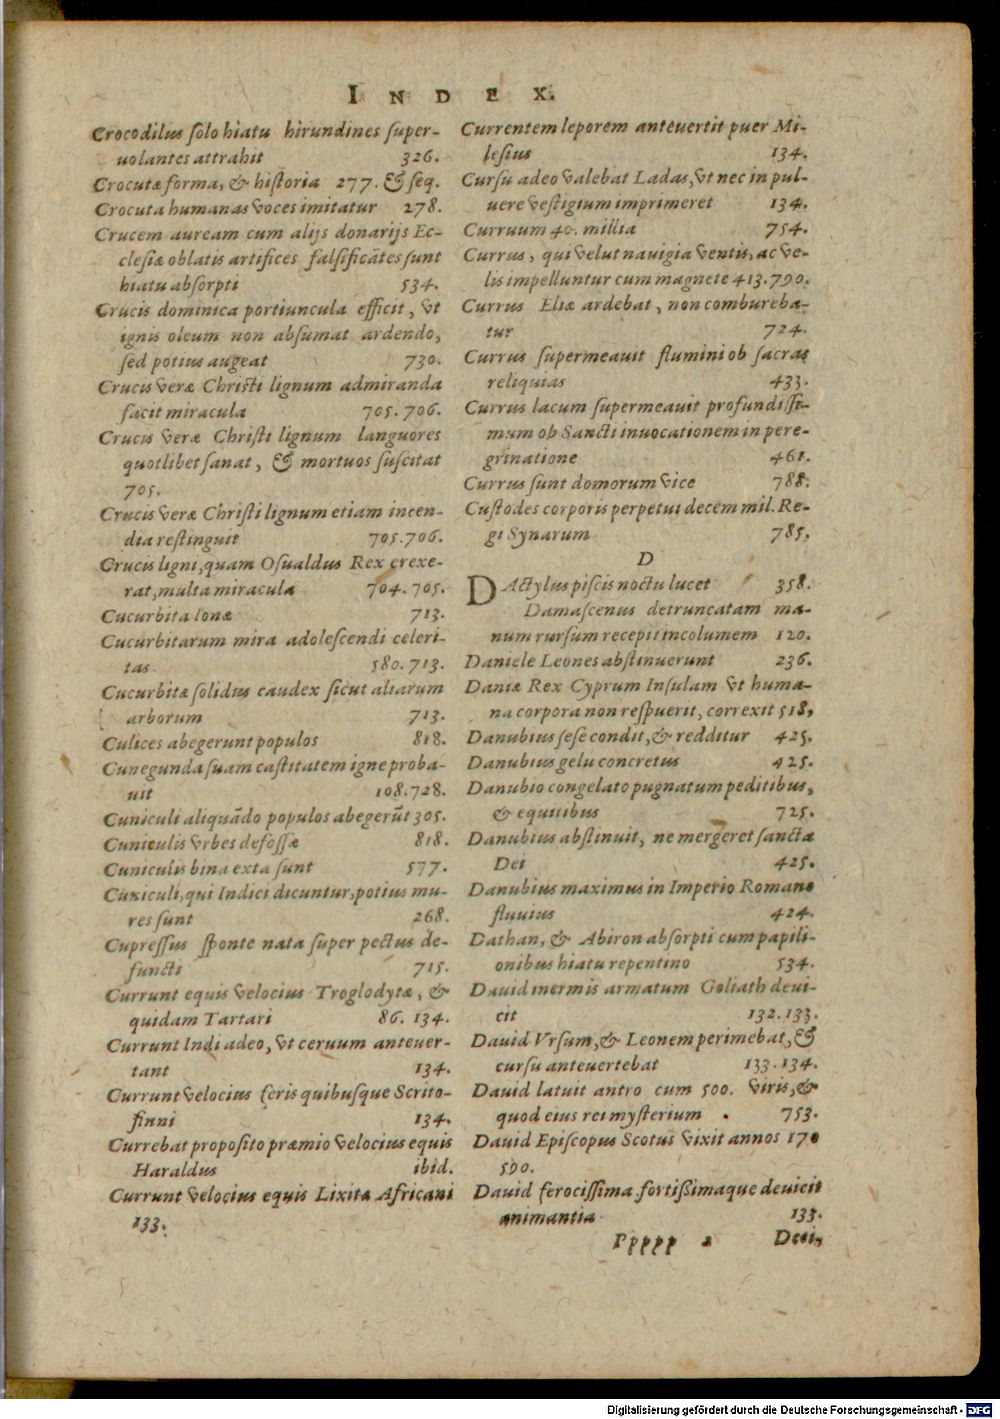 INDEX.
Crocodilus solo hiatu hirundines super-
uolantes attrahit 326.
Crocutæ forma, & historia 277. & seq.
Crocuta humanas voces imitatur 278.
Crucem auream cum alijs donarijs Ec-
clesiæ oblatis artifices falsificātes sunt
hiatu absorpti 534.
Crucis dominica portiuncula efficit, vt
ignis oleum non absumat ardendo,
sed potius augeat 730.
Crucis veræ Christi lignum admiranda
facit miracula 705. 706.
Crucis veræ Christi lignum languores
quotlibet sanat, & mortuos suscitat
705.
Crucis veræ Christi lignum etiam incen-
dia restinguit 705.706.
Crucis ligni, quam Osualdus Rex erexe-
rat, multa miracula 704. 705.
Cucurbita Ionæ 713.
Cucurbitarum mira adolescendi celeri-
tas 580. 713.
Cucurbitæ solidus caudex sicut aliarum
arborum 713.
Culices abegerunt populos 818.
Cunegunda suam castitatem igne proba-
uit 108.728.
Cuniculi aliquādo populos abegerūt 305.
Cuniculis vrbes defossæ 818.
Cuniculis bina exta sunt 577.
Cuniculi, qui Indici dicuntur, potius mu-
res sunt 268.
Cupressus sponte nata super pectus de-
functi 715.
Currunt equis velocius Troglodytæ, &
quidam Tartari 86. 134.
Currunt Indi adeo, vt ceruum anteuer-
tant 134.
Currunt velocius feris quibusque Scrito-
finni 134.
Currebat proposito præmio velocius equis
Haraldus ibid.
Currunt velocius equis Lixitæ Africani
133.
Currentem leporem anteuertit puer Mi-
lesius 134.
Cursu adeo valebat Ladas, vt nec in pul-
uere vestigium imprimeret 134.
Curruum 40. millia 754.
Currus, qui velut nauigia ventis, ac ve-
lis impelluntur cum magnete 413.790.
Currus Eliæ ardebat, non combureba-
tur 724.
Currus supermeauit flumini ob sacras
reliquias 433.
Currus lacum supermeauit profundissi-
mum ob Sancti inuocationem in pere-
grinatione 461.
Currus sunt domorum vice 788.
Custodes corporis perpetui decem mil. Re-
gi Synarum 785.
D
DActylus piscis noctu lucet 358.
Damascenus detruncatam ma-
num rursum recepit incolumem 120.
Daniele Leones abstinuerunt 236.
Daniæ Rex Cyprum Insulam vt huma-
na corpora non respuerit, correxit 518.
Danubius sese condit, & redditur 425.
Danubius gelu concretus 425.
Danubio congelato pugnatum peditibus,
& equitibus 725.
Danubius abstinuit, ne mergeret sanctæ
Dei 425.
Danubius maximus in Imperio Romano
fluuius 424.
Dathan, & Abiron absorpti cum papili-
onibus hiatu repentino 534.
Dauid inermis armatum Goliath deui-
cit 132.133.
Dauid Vrsum, & Leonem perimebat, &
cursu anteuertebat 133.134.
Dauid latuit antro cum 500. viris, &
quod eius rei mysterium . 753.
Dauid Episcopus Scotus vixit annos 170
590.
Dauid ferocissima fortissimaque deuicit
animantia 133.
Ppppp 2 Deci,
Digitalisierung gefördert durch die Deutsche Forschungsgemeinschaft - DFG